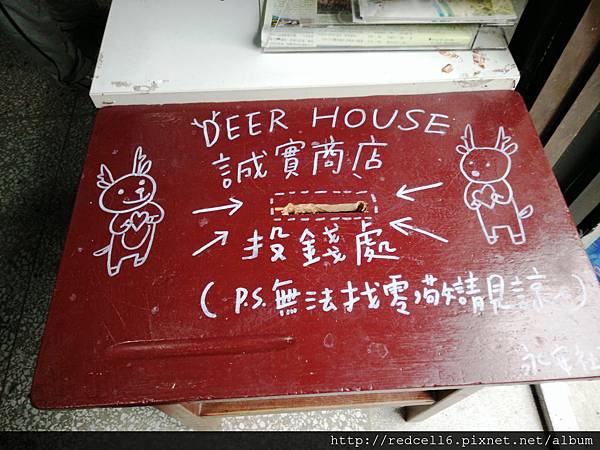 DEER HOUSE
誠實商店
投錢處
(P.S. 無法找零 請見諒~)
http://redcell6.pixnet.net/album